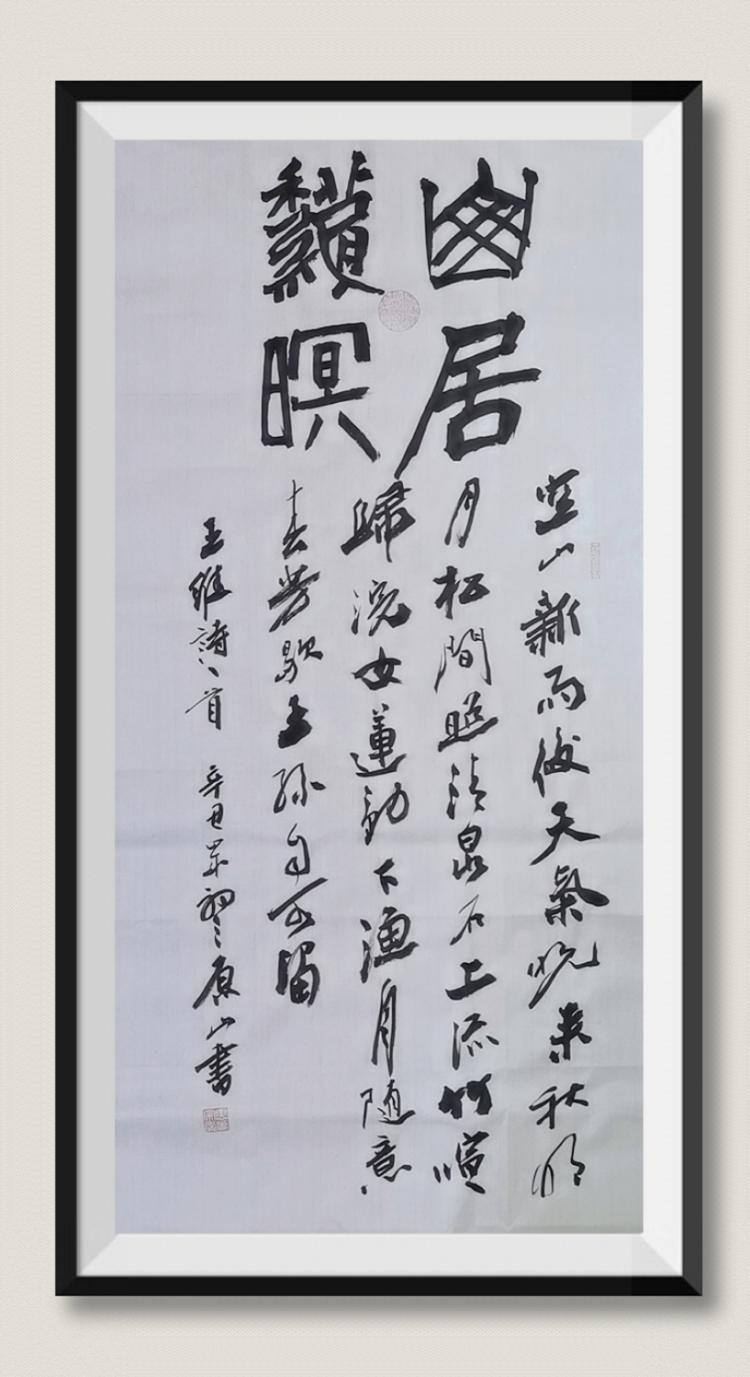 山居
龝暝
空山新雨後天氣晚來秋明
月松間照清泉石上流竹喧
歸浣女蓮動下漁舟随意
春芳歇王孫自可留
王維詩一首 辛丑年初 原山書